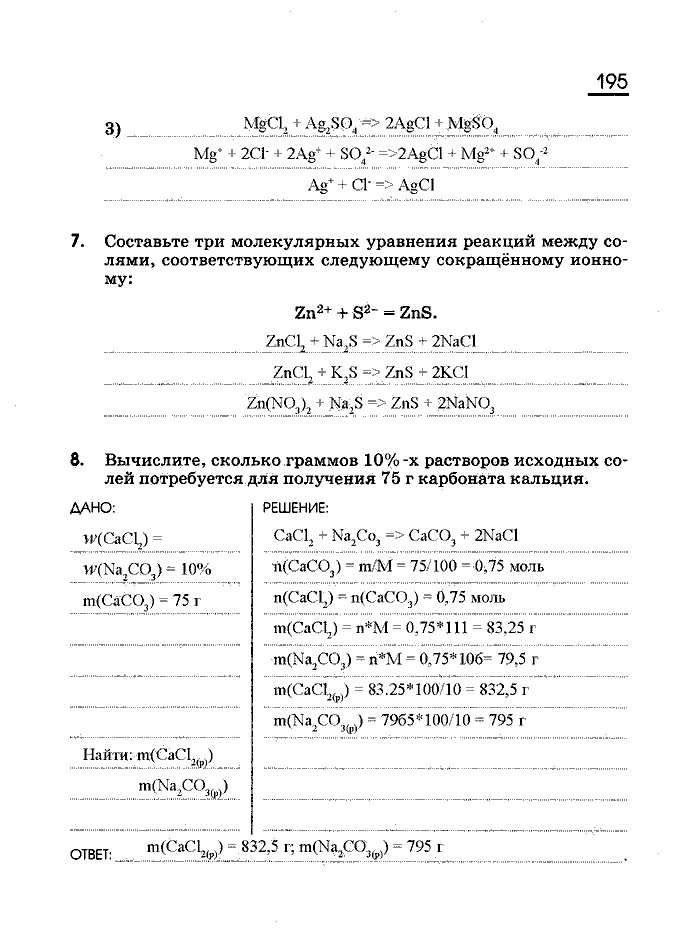 195
3) MgCl₂ + Ag₂SO₄ => 2AgCl + MgSO₄
Mg⁺ + 2Cl⁻ + 2Ag⁺ + SO₄²⁻ =>2AgCl + Mg²⁺ + SO₄⁻²
Ag⁺ + Cl⁻ => AgCl
7. Составьте три молекулярных уравнения реакций между со-
лями, соответствующих следующему сокращённому ионно-
му:
Zn²⁺ + S²⁻ = ZnS.
ZnCl₂ + Na₂S => ZnS + 2NaCl
ZnCl₂ + K₂S => ZnS + 2KCl
Zn(NO₃)₂ + Na₂S => ZnS + 2NaNO₃
8. Вычислите, сколько граммов 10%-х растворов исходных со-
лей потребуется для получения 75 г карбоната кальция.
ДАНО:
w(CaCl₂) =
w(Na₂CO₃) = 10%
m(CaCO₃) = 75 г
Найти: m(CaCl₂₍ₚ₎)
m(Na₂CO₃₍ₚ₎)
РЕШЕНИЕ:
CaCl₂ + Na₂Co₃ => CaCO₃ + 2NaCl
n(CaCO₃) = m/M = 75/100 = 0,75 моль
n(CaCl₂) = n(CaCO₃) = 0,75 моль
m(CaCl₂) = n*M = 0,75*111 = 83,25 г
m(Na₂CO₃) = n*M = 0,75*106= 79,5 г
m(CaCl₂₍ₚ₎) = 83.25*100/10 = 832,5 г
m(Na₂CO₃₍ₚ₎) = 7965*100/10 = 795 г
ОТВЕТ: m(CaCl₂₍ₚ₎) = 832,5 г; m(Na₂CO₃₍ₚ₎) = 795 г .